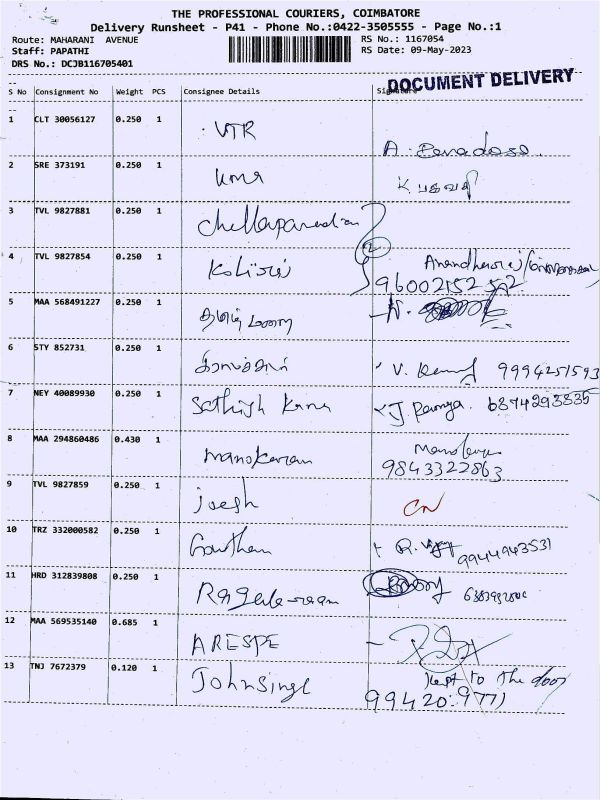 THE PROFESSIONAL COURIERS, COIMBATORE
Delivery Runsheet - P41 - Phone No.:0422-3505555 - Page No.:1
Route: MAHARANI AVENUE
RS No.: 1167054
Staff: PAPATHI
RS Date: 09-May-2023
DRS No.: DCJB116705401
DOCUMENT DELIVERY
S No Consignment No Weight PCS Consignee Details Signature
1 CLT 30056127 0.250 1 VTR
2 SRE 373191 0.250 1
3 TVL 9827881 0.250 1 Chellapandian
2
4 TVL 9827854 0.250 1
9600215252
5 MAA 568491227 0.250 1 N.
6 STY 852731 0.250 1 V. 9994251593
7 NEY 40089930 0.250 1 Sathish Kumar J. Ramya. 6374293835
8 MAA 294860486 0.430 1 manokaram
9843322863
9 TVL 9827859 0.250 1 joesh CN
10 TRZ 332000582 0.250 1 Gowtham R. 9944943531
11 HRD 312839808 0.250 1
12 MAA 569535140 0.685 1 ARESPE
13 TNJ 7672379 0.120 1 JohnSingh kept to the door
99420 9771